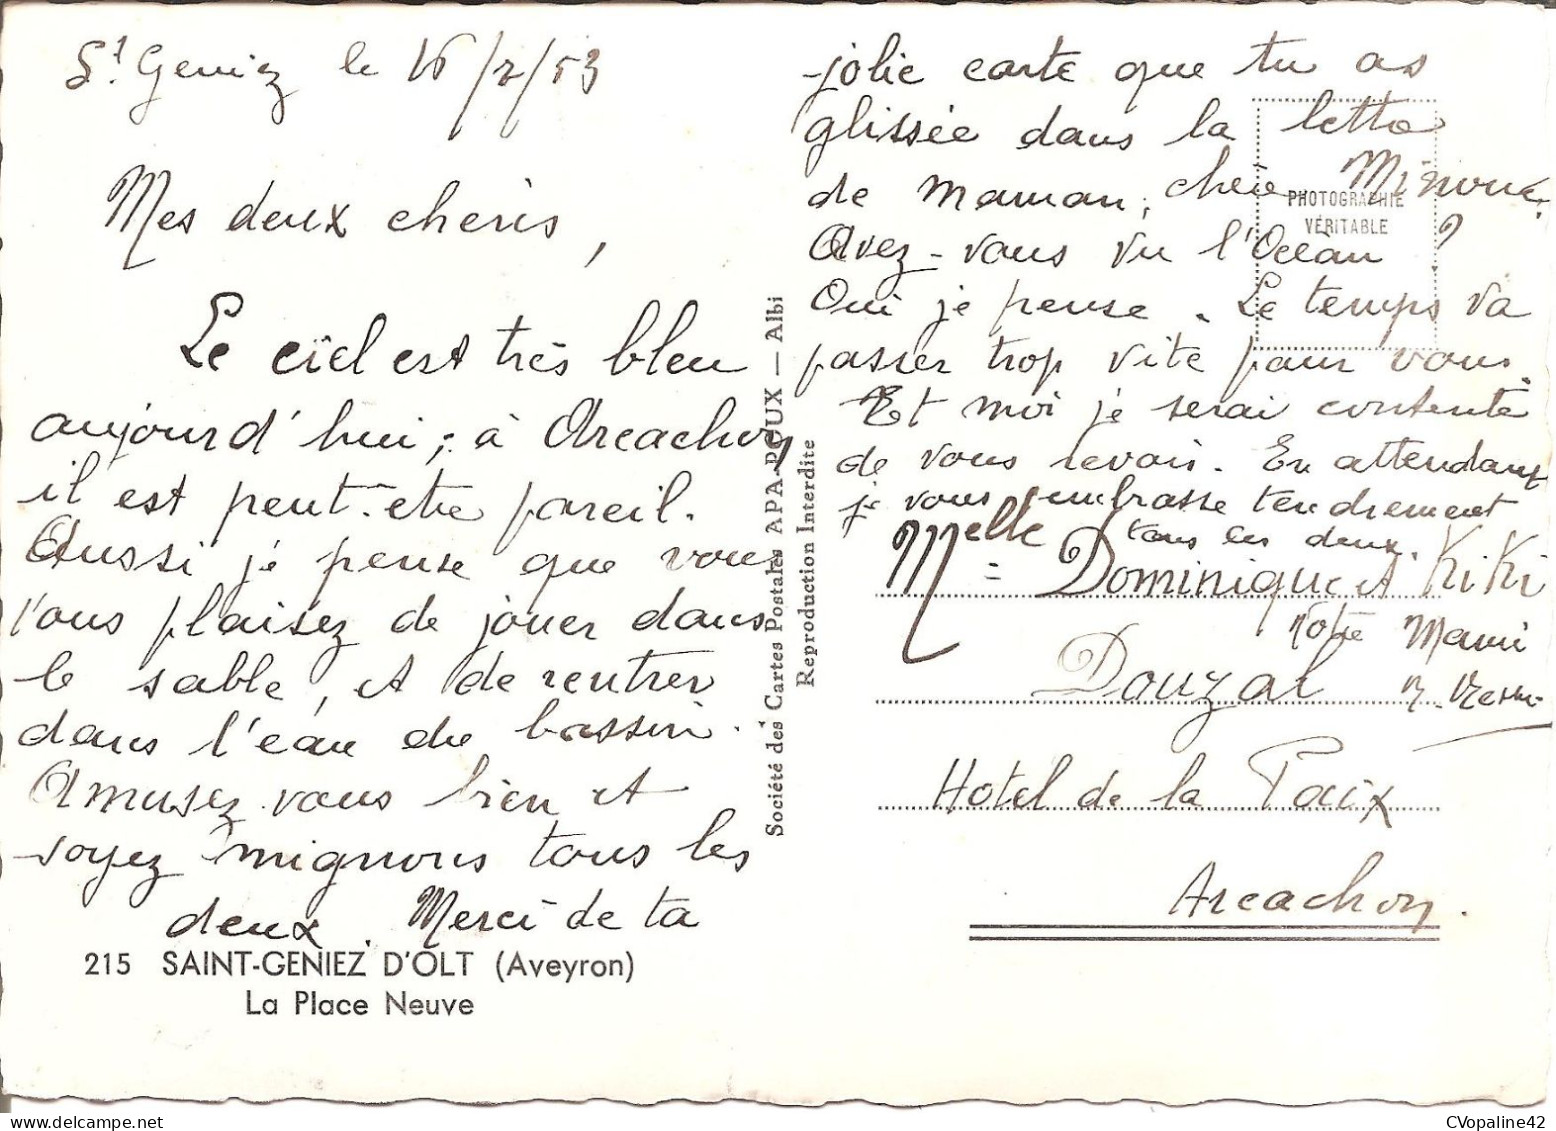 St Geniez le 16/7/53
Mes deux cheris,
Le ciel est très bleu
aujourd'hui, à Arcachon
il est peut-etre pareil.
Aussi je pense que vous
vous plaisez de jouer dans
le sable, et de rentrer
dans l'eau du bassin.
Amusez-vous bien et
soyez mignons tous les
deux. Merci de ta
215 SAINT-GENIEZ D'OLT (Aveyron)
La Place Neuve
Société des Cartes Postales APA-POUX — Albi
Reproduction Interdite
jolie carte que tu as
glissée dans la lettre
de maman, chère Minouc.
Avez-vous vu l'Océan ?
Oui je pense. Le temps va
passer trop vite pour vous.
Et moi je serai contente
de vous revoir. En attendant
je vous embrasse tendrement
tous les deux.
Votre Mami
PHOTOGRAPHIE
VÉRITABLE
Melle Dominique et KiKi
Douzal
Hotel de la Paix
Arcachon.
CVopaline42